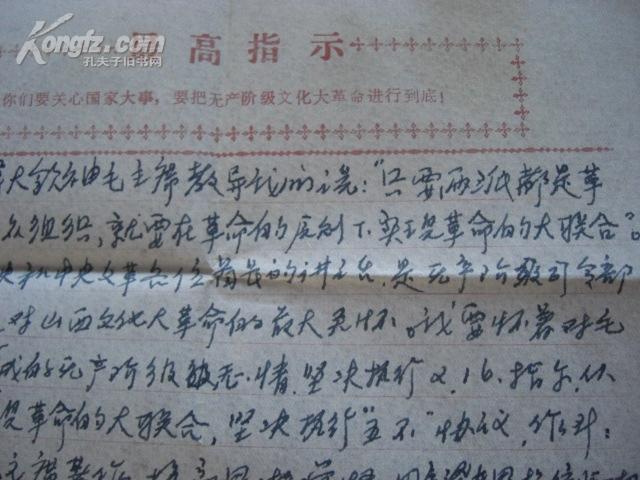 Kongfz.com
孔夫子旧书网
最高指示
你们要关心国家大事，要把无产阶级文化大革命进行到底！
伟大领袖毛主席教导我们说："只要两派都是革
众组织，就要在革命的原则下实现革命的大联合"。
央和中央文革各位首长的讲话，是无产阶级司令部
对山西文化大革命的最大关怀。我要怀着对毛
无产阶级感情，坚决执行2.16.指示，
革命的大联合，坚决执行"五不"协议，作到：
主席著作